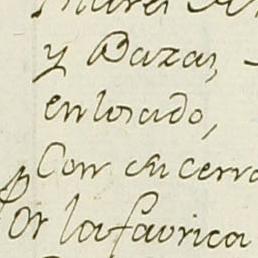 y Bazas,
enlosado,
Con su cerra
Por la favrica